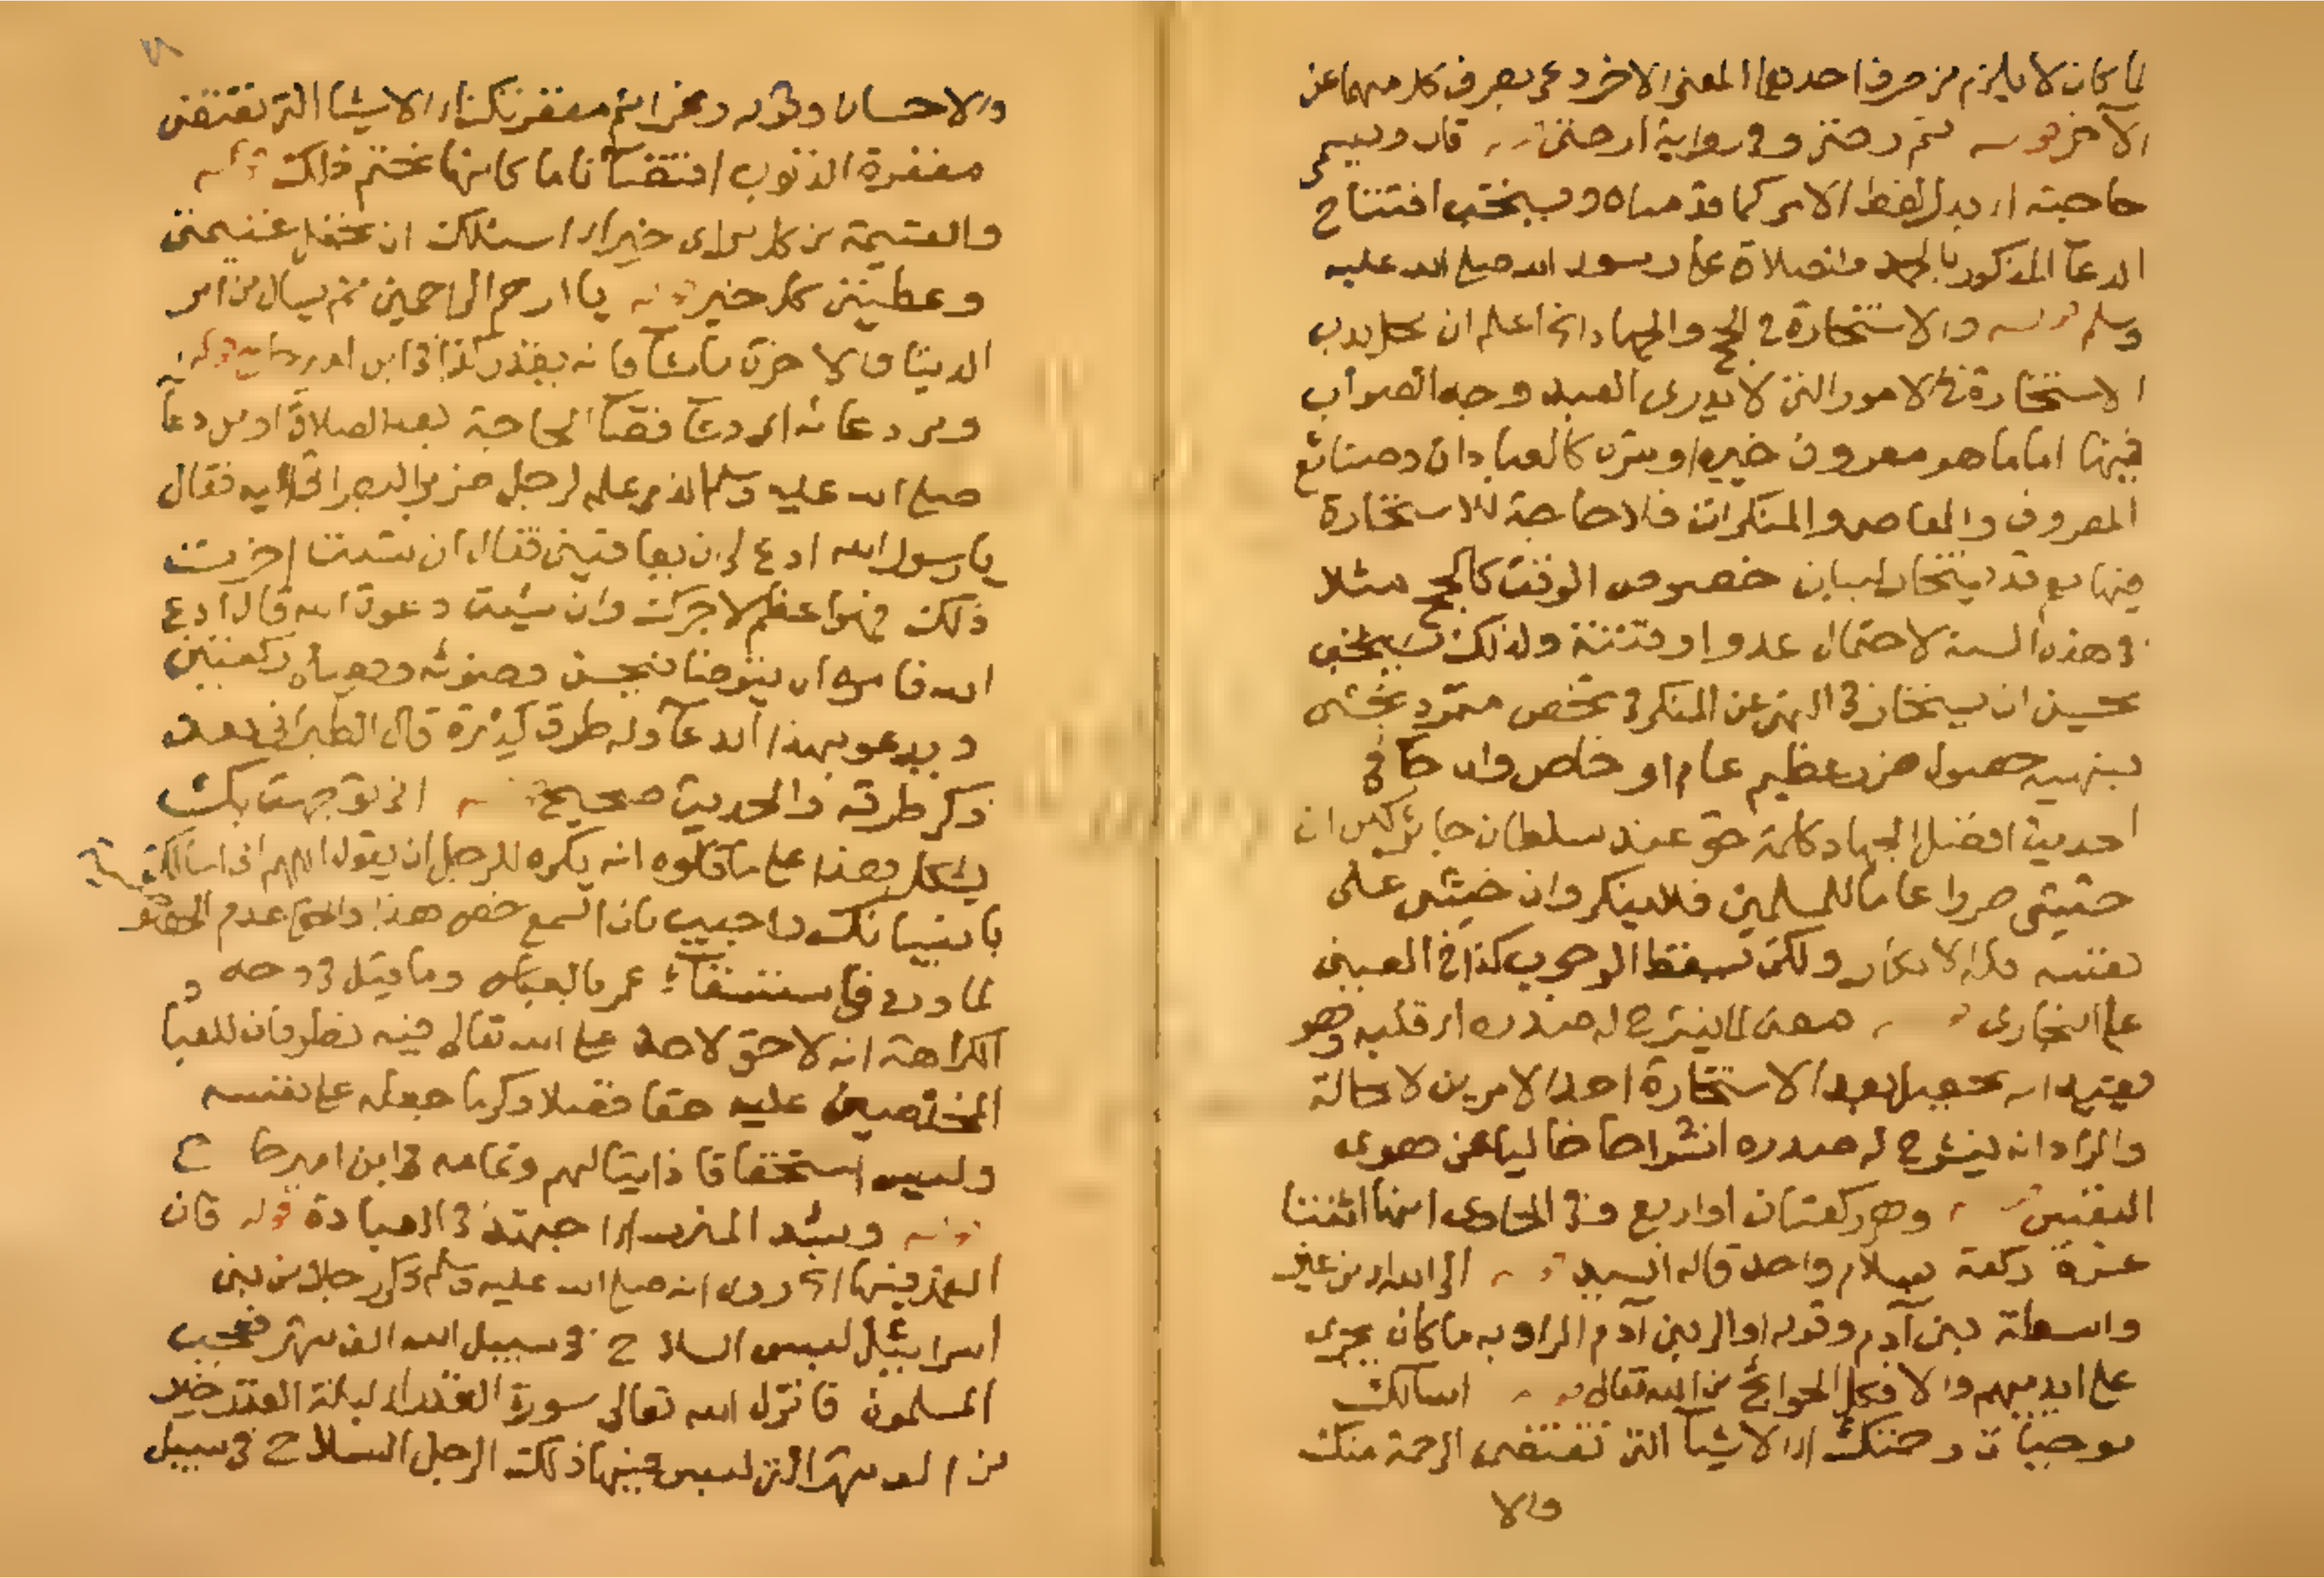 لما كان لا يلزم من صرف احدهما المعنى الاخر دعى بصرف كل منهما عن
الآخر قوله ثم رضني وفي رواية ارضني قال ويسمى
حاجته اي بدل لفظ الامر كما قدمناه ويستحب افتتاح
الدعآ المذكور بالحمد والصلاة على رسول الله صلى الله عليه
وسلم قوله والاستخارة في الحج والجهاد الخ اعلم ان محل ندب
الاستخارة في الامور التي لا يدري العبد وجه الصواب
فيها اما ما هو معروف خيره او شره كالعبادات وصنائع
المعروف والمعاصي والمنكرات فلا حاجة للاستخارة
فيها نعم قد يستخار لبيان خصوص الوقت كالحج مثلا
في هذه السنة لاحتمال عدو او فتنة ولذلك يستحب
يحسن ان يستخار في النهي عن المنكر في شخص متمرد يخشى
بنهيه حصول ضرر عظيم عام او خاص وان جآ في
حديث افضل الجهاد كلمة حق عند سلطان جائر لكن ان
خشي ضررا عاما للمسلمين فلا ينكر وان خشي على
نفسه فله الانكار ولكن يسقط الوجوب كذا في العيني
على البخاري قوله مضى لما ينشرح له صدره اي قلبه وهو
يفيد انه يحصل بعد الاستخارة احد الامرين لا محالة
والمراد انه ينشرح له صدره انشراحا خاليا عن هوى
النفس قوله وهي ركعتان او اربع وفي الحاوي انها اثنتا
عشرة ركعة بسلام واحد قاله السيد قوله الى الله اي من غير
واسطة بني آدم وقوله او الى بني آدم المراد به ما كان يجري
على ايديهم والا فكل الحوائج من الله تعالى قوله اسالك
موجبات رحمتك اي الاشيآ التي تقتضي الرحمة منك
والا
والاحسان وقوله وعزائم مغفرتك اي الاشيا التي تقتضي
مغفرة الذنوب اقتضآ تاما كانها تحتم ذلك قوله
والغنيمة من كل بر اي خير اي اسئلك ان تجعل غنيمتي
وعطيتي كل خير قوله يا ارحم الراحمين ثم يسال من امر
الدنيا والاخرة ما شآ فانه يقدر كذا في ابن امير حاج قوله
ومن دعائه اي دعآ قضآ الحاجة بعد الصلاة او من دعآ
صلى الله عليه وسلم الذي علمه لرجل ضرير البصر اتى اليه فقال
يا رسول الله ادع لي ان يعافيني فقال ان شئت اخرت
ذلك فهو اعظم لاجرك وان شئت دعوت الله قال ادع
الله فامره ان يتوضا فيحسن وضوئه وصلى ركعتين
ويدعو بهذا الدعآ وله طرق كثيرة قال الطبراني بعد
ذكر طرقه والحديث صحيح قوله اني توجهت بك
يشكل هذا على ما قالوه انه يكره للرجل ان يقول اللهم اني اسالك
بانبيائك واجيب بان السمع خص هذا والحق عدم
لما ورد في استسقآء عمر بالعباس وما قيل في وجه
الكراهة انه لا حق لاحد على الله تعالى فيه نظر فان للعبا
المخلصين عليه حقا فضلا وكرما جعله على نفسه
وليس استحقاقا ذاتيا لهم وتمامه في ابن امير حا ج
قوله وشد المئزر اي اجتهد في العبادة قوله فان
العمل فيها الخ روي انه صلى الله عليه وسلم ذكر رجلا من بني
اسرائيل لبس السلاح في سبيل الله الف شهر فعجب
المسلمون فانزل الله تعالى سورة القدر اي ليلة القدر خير
من الف شهر التي لبس فيها ذلك الرجل السلاح في سبيل